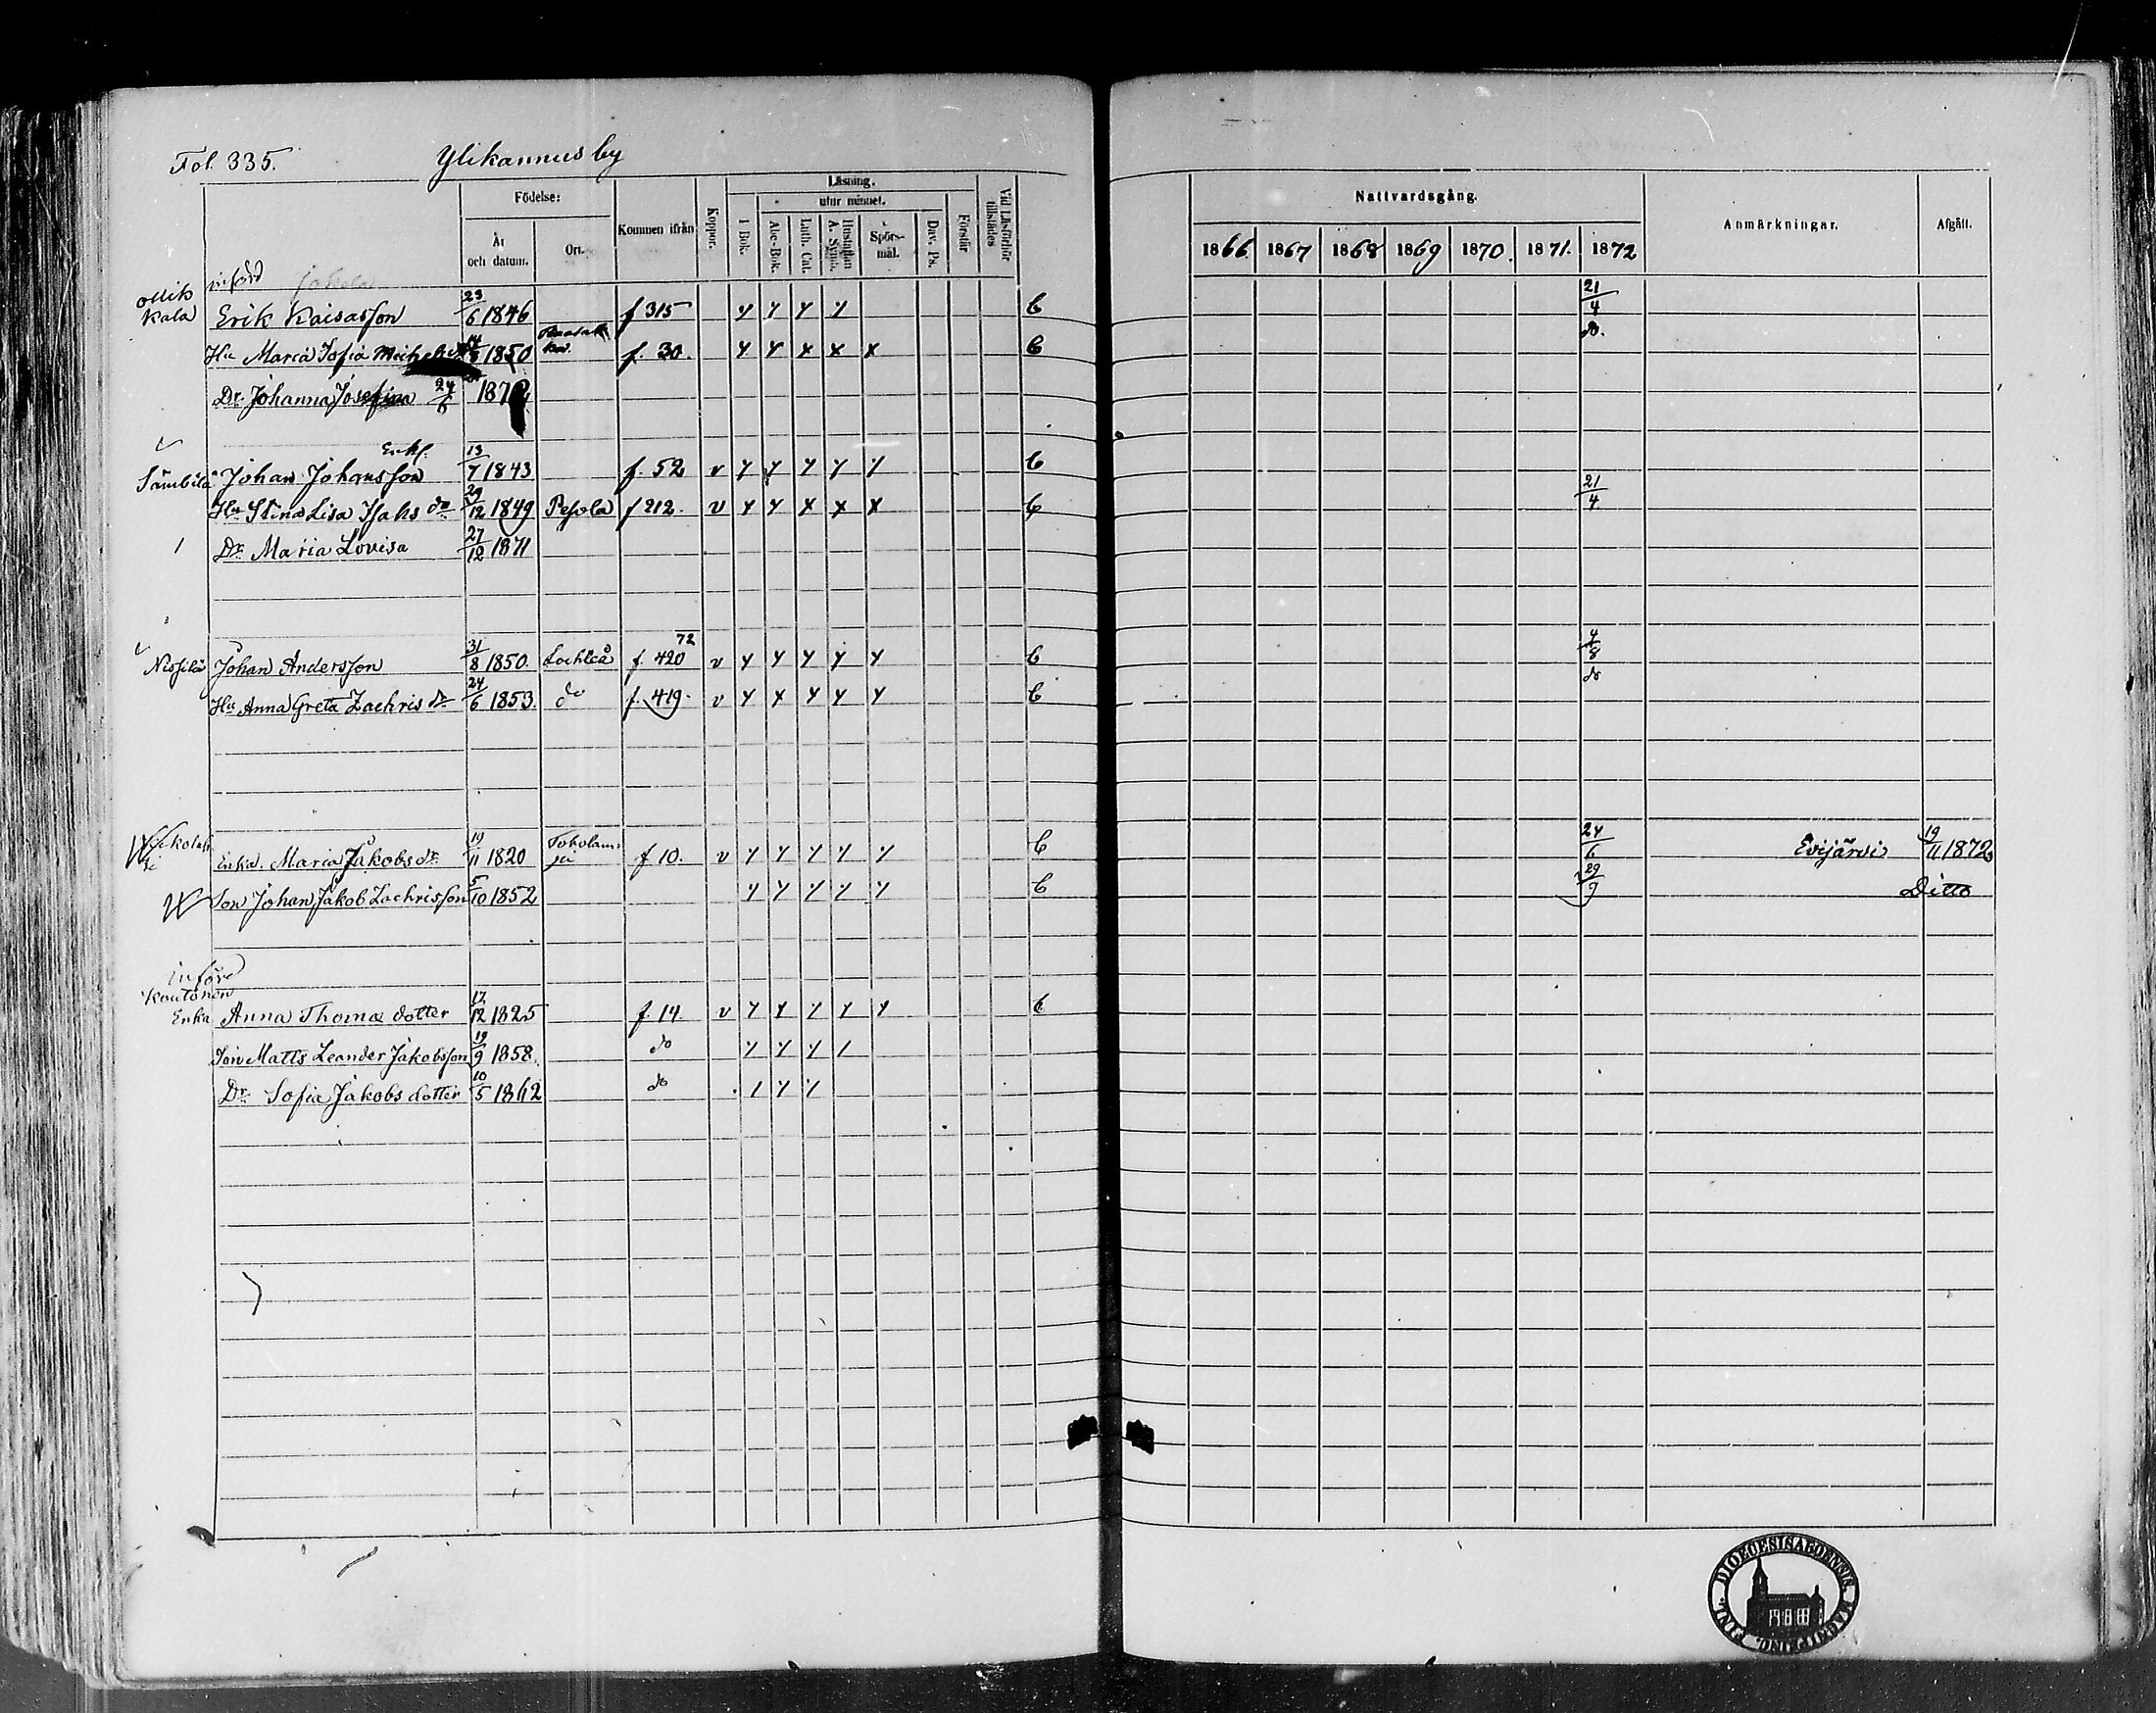 Fol. 335. Ylikannus by
Födelse: Kommen ifrån Koppor. Läsning. Vid Läsförhör tillstädes
År och datum. Ort. i Bok. utur minnet. Förstår
Abc-Bok. Luth. Cat. Hustaflan A. Symb. Spörs-mål. Dav. Ps.
Nattvardsgång. Anmärkningar. Afgått.
1866. 1867 1868 1869 1870. 1871. 1872
införd Jokela
Kala Erik Kaisasson 23/6 1846 f 315 C 21/4
Hu Maria Sofia 1850 f. 30. C do.
Dr. Johanna Josefina 24/6 187
Enkl.
Johan Johansson 13/7 1843 f. 52 v C
Hu Stina Lisa Isaks dr 29/12 1849 Pesola f 212. v C 21/4
1 Dr. Maria Lovisa 27/12 1871
72
Nissilä Johan Andersson 31/8 1850. Lochteå f. 420 v C 4/8
Hu Anna Greta Zachris dr 24/6 1853. do f. 419. v C do
Enka. Maria Jakobs dr. 19/11 1820 f 10. v C 24/6 Evijärvi 19/11 1872
Son Johan Jakob Zachrisson 5/10 1852 C 29/9 Ditto
införd
Kautonen
Enka Anna Thomæ dotter 17/12 1825 f. 14 v C
Son Matts Leander Jakobsson 19/9 1858. do
Dr. Sofia Jakobs dotter 10/5 1862 do